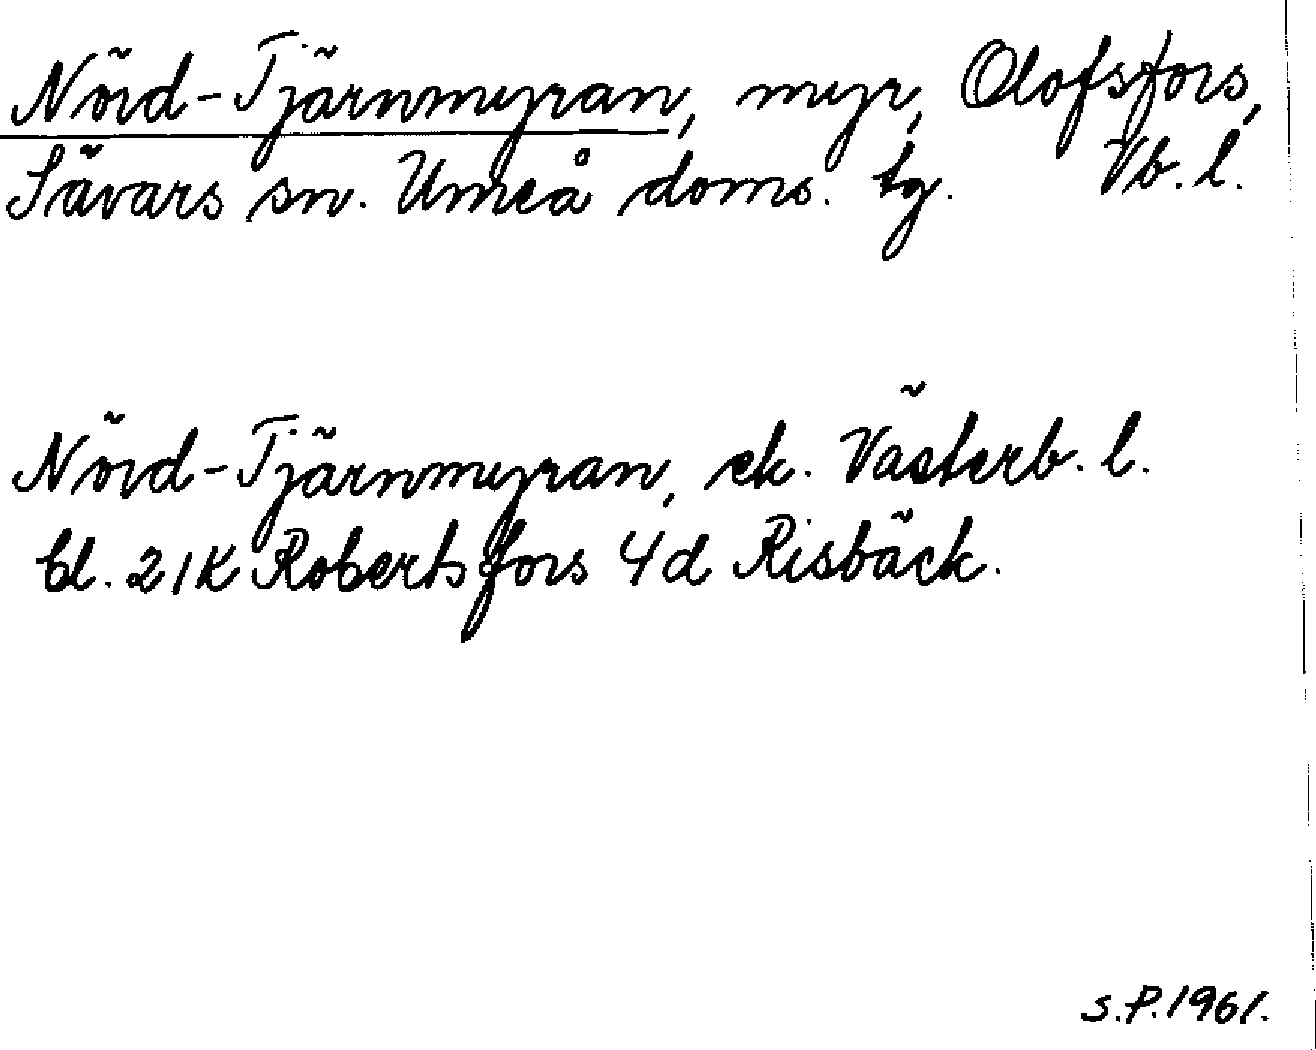 Nörd-Tjärnmyran, myr, Olofsfors,
Sävars sn. Umeå doms. tg. Vb. l.
Nörd-Tjärnmyran, ek. Västerb. l.
bl. 21K Robertsfors 4d Risbäck.
S.P. 1961.